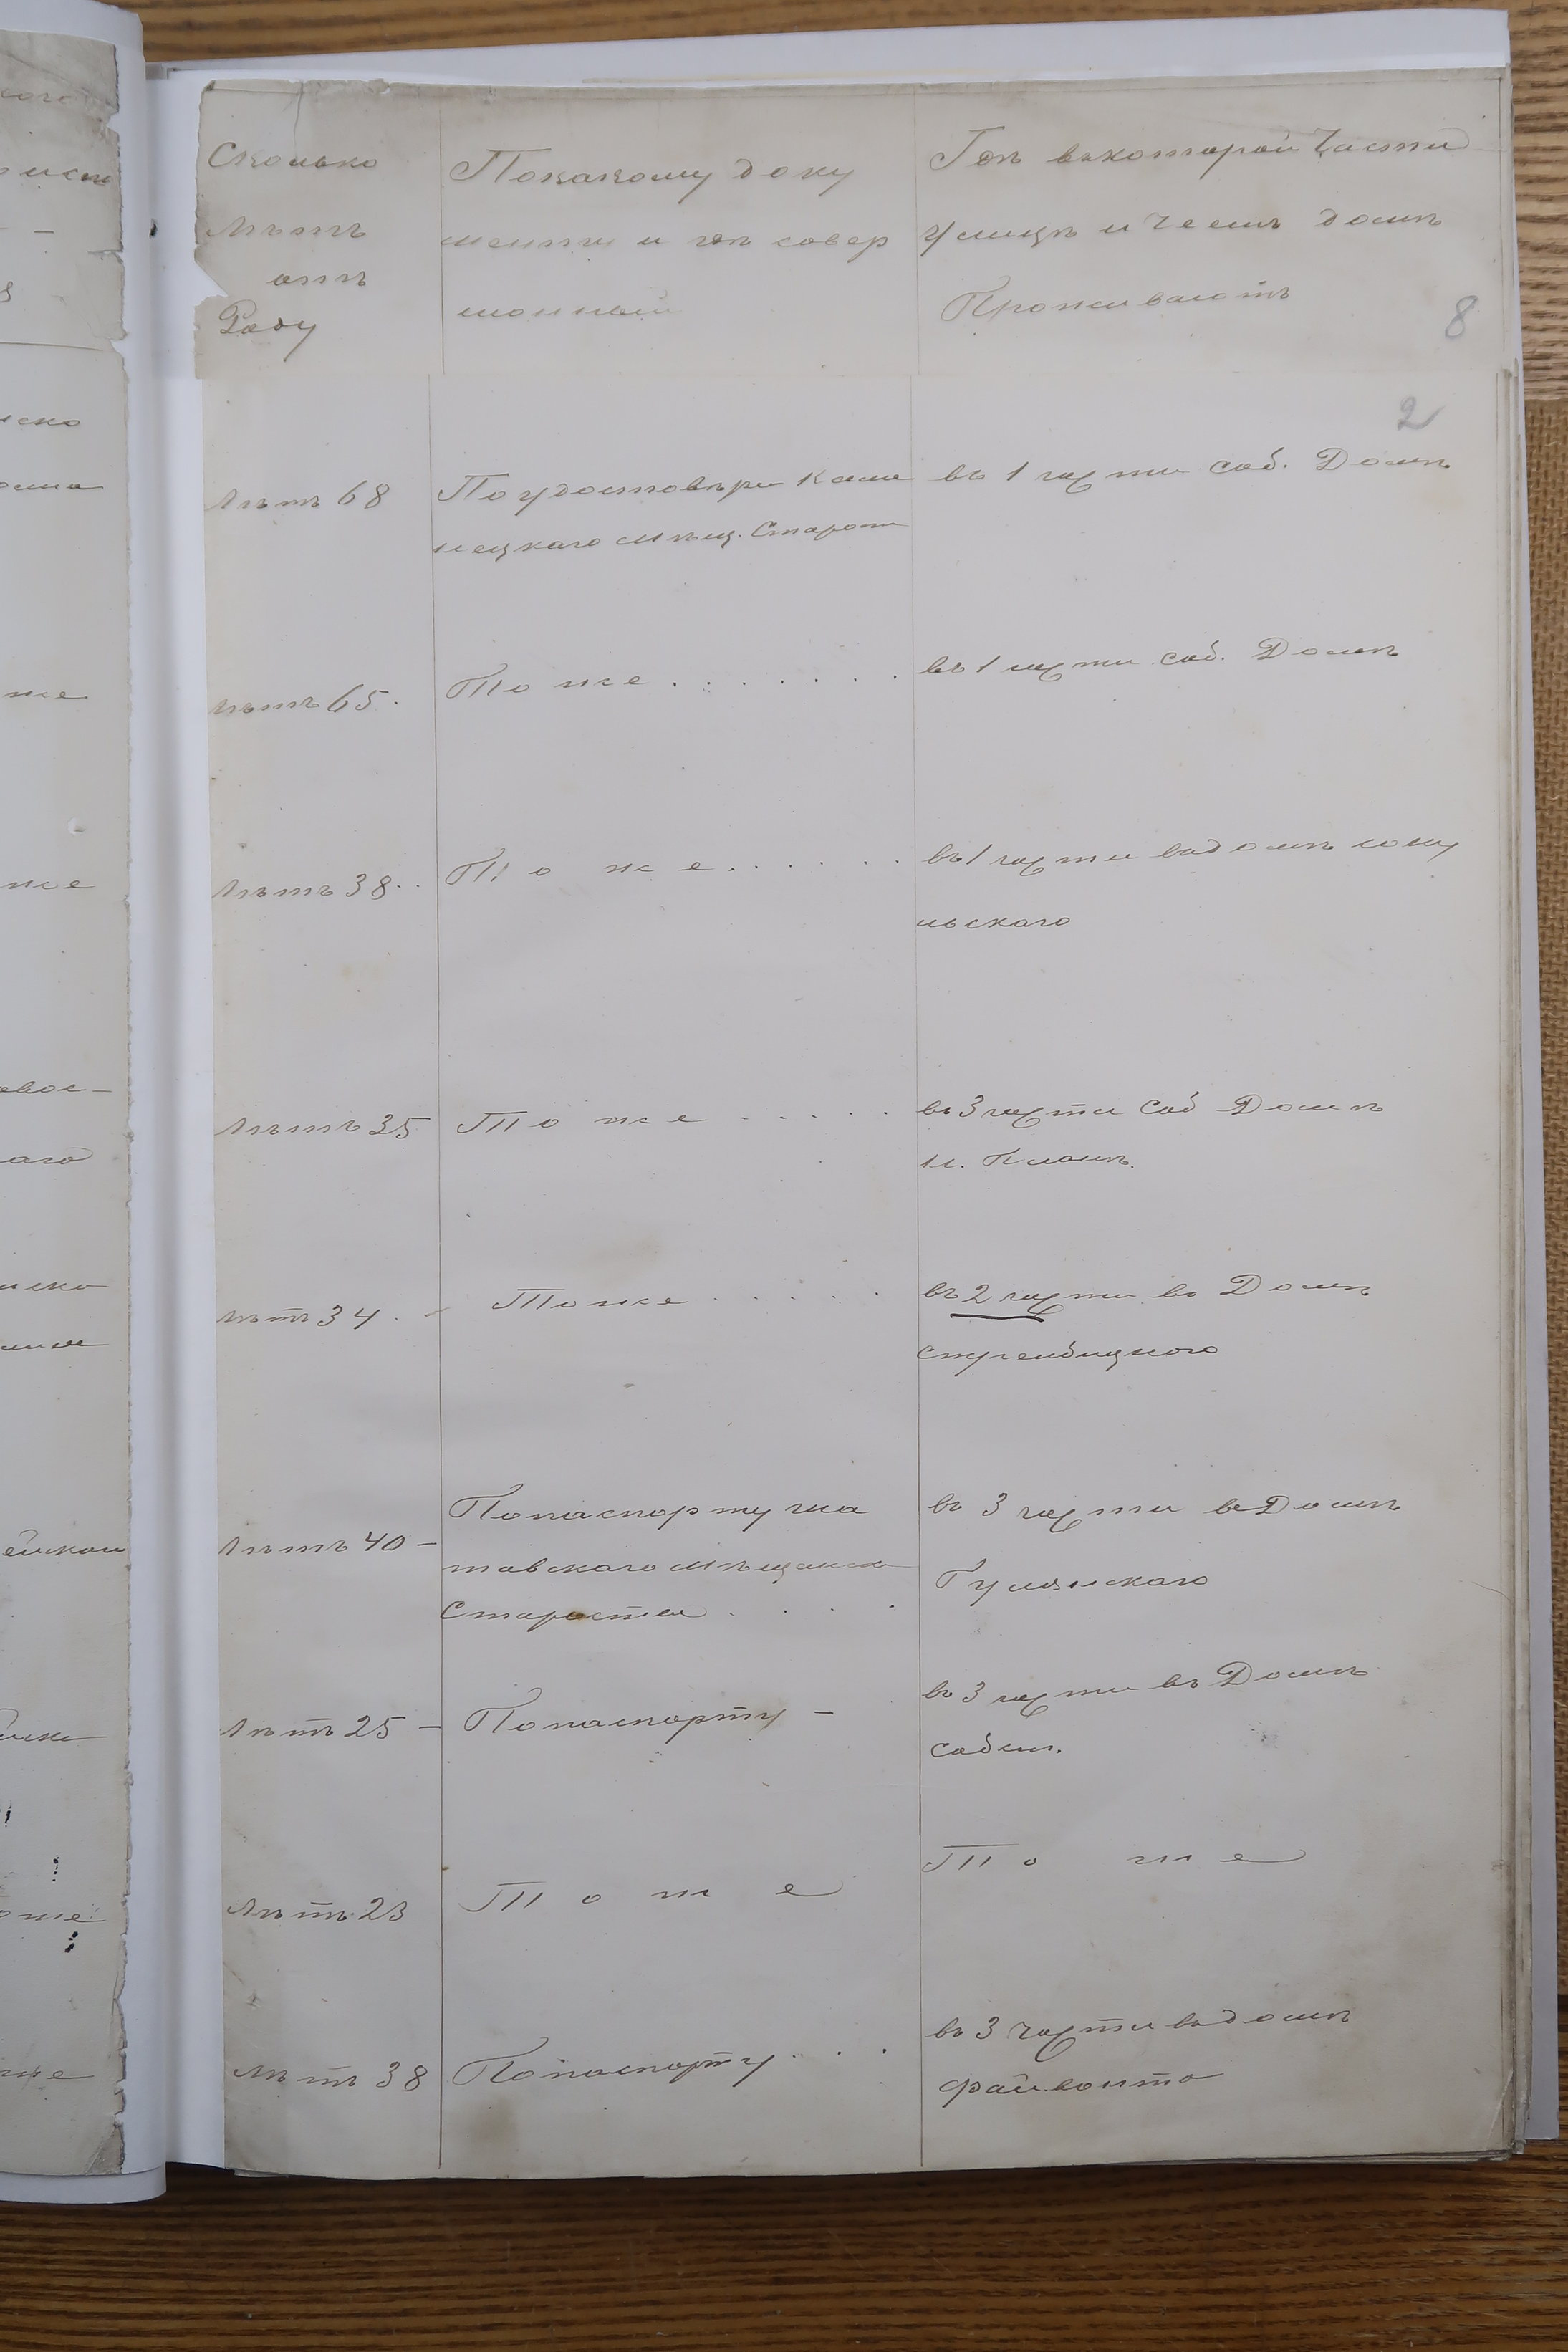 Сколько
лѣтъ
отъ
Роду
Покакому доку
менту и гдѣ совер
шонный
Гдѣ въкоторой Части
Улицѣ и Чеемъ домѣ
Проживаютъ
8
2
лѣтъ 68
По удостовѣри Каме
нецкаго мѣщ. Старош
въ 1 части соб. Домѣ
лѣтъ 65.
Тоже . . . . . . .
въ 1 части соб. Домѣ
лѣтъ 38..
Тоже . . . . . .
въ 1 части вадомѣ соку
льскаго
лѣтъ 35
Тоже . . . . .
въ 3 части Соб Домѣ
н. Планъ.
лѣтъ 34. -
Тоже . . . . .
въ 2 части въ Домѣ
стрембицкого
лѣтъ 40 -
Попаспорту
тавскаго мѣщанск
Старосты . . . .
въ 3 части вДомѣ
Гуминскаго
лѣтъ 25 -
Попаспорту -
въ 3 части въ Домѣ
собст.
лѣтъ 23
Тоже
Тоже
лѣтъ 38
Попаспорту . . .
въ 3 части вадомѣ
файвонта